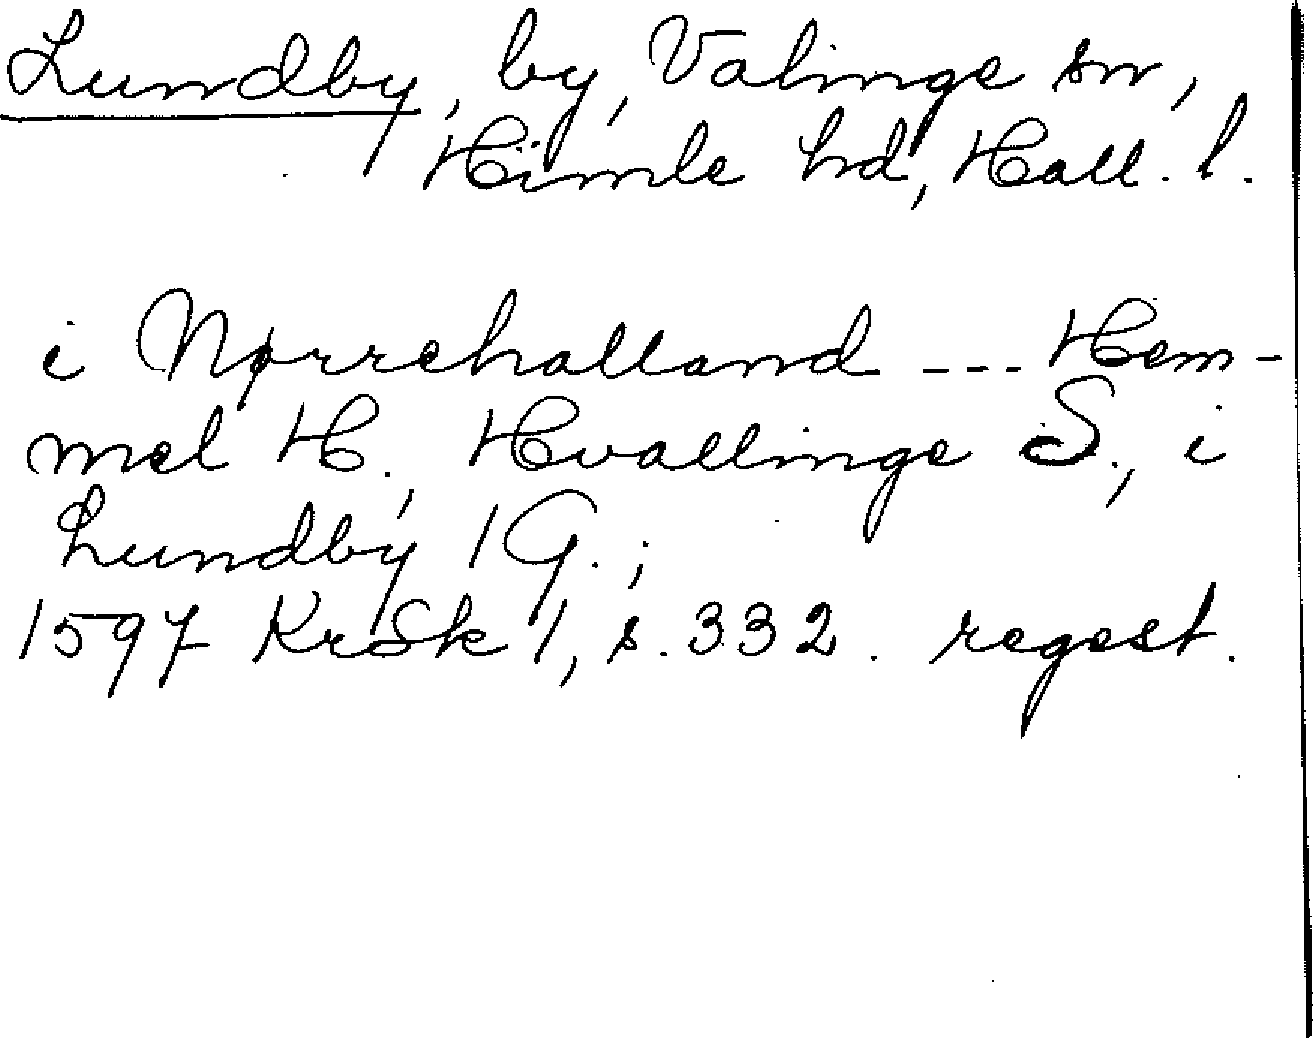 Lundby, by, Valinge sn,
Himle hd, Hall. l.
i Nørrehalland --- Hem-
mel H., Hvallinge S., i
Lundby 1 G.;
1597 KrSk 1, s. 332. regest.